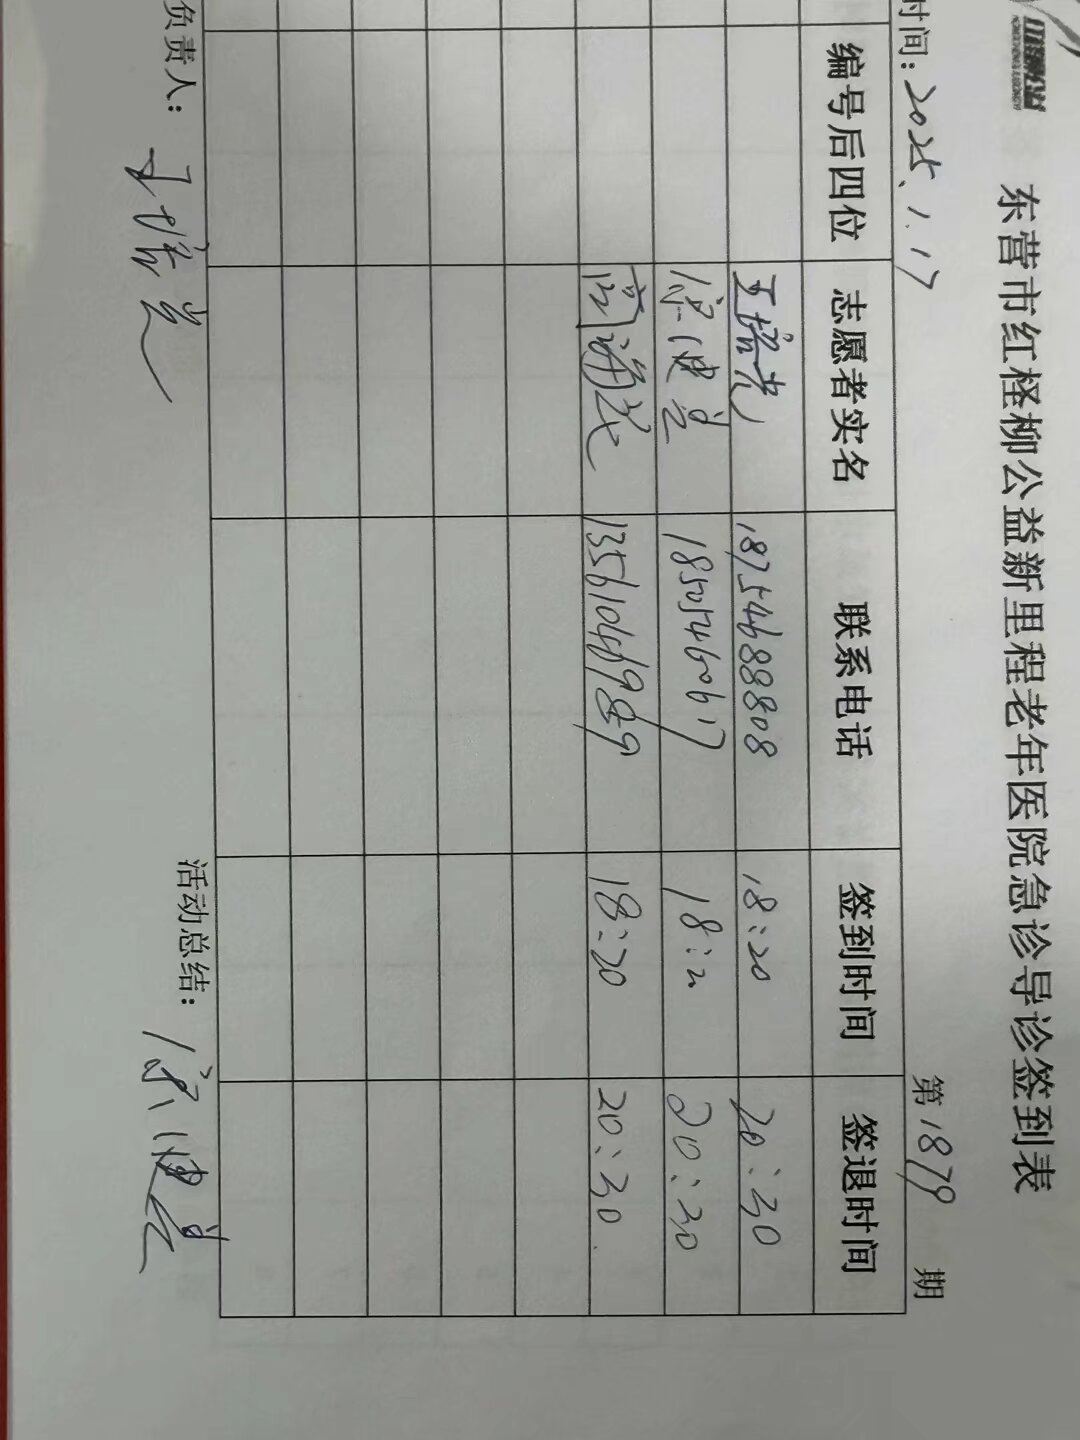 东营市红柽柳公益新里程老年医院急诊导诊签到表
时间：2025.1.17 第1879期
编号后四位 志愿者实名 联系电话 签到时间 签退时间
王培亮 18754688808 18:20 20:30
18505460617 18:2 20:30
13561046989 18:20 20:30
负责人： 王培亮 活动总结：